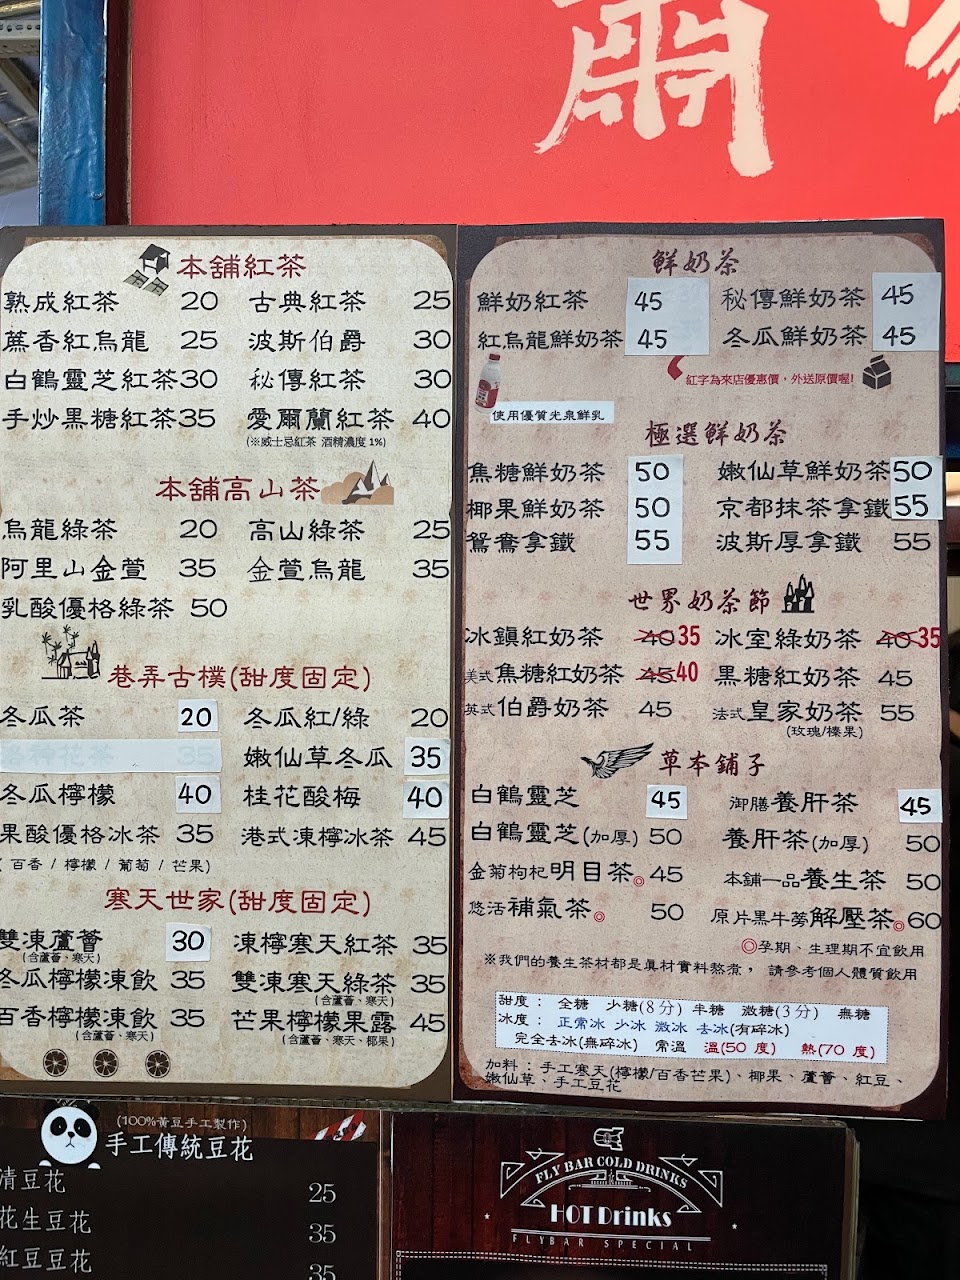 爾
本舖紅茶
熟成紅茶 20 古典紅茶 25
蔗香紅烏龍 25 波斯伯爵 30
白鶴靈芝紅茶30 秘傳紅茶 30
手炒黑糖紅茶35 愛爾蘭紅茶 40
(※威士忌紅茶 酒精濃度1%)
本舖高山茶
烏龍綠茶 20 高山綠茶 25
阿里山金萱 35 金萱烏龍 35
乳酸優格綠茶 50
巷弄古樸(甜度固定)
冬瓜茶 20 冬瓜紅/綠 20
洛神花茶 35 嫩仙草冬瓜 35
冬瓜檸檬 40 桂花酸梅 40
果酸優格冰茶 35 港式凍檸冰茶 45
( 百香 / 檸檬 / 葡萄 / 芒果)
寒天世家(甜度固定)
雙凍蘆薈 30 凍檸寒天紅茶 35
(含蘆薈、寒天)
冬瓜檸檬凍飲 35 雙凍寒天綠茶 35
(含蘆薈、寒天)
百香檸檬凍飲 35 芒果檸檬果露 45
(含蘆薈、寒天) (含蘆薈、寒天、椰果)
鮮奶茶
鮮奶紅茶 45 秘傳鮮奶茶 45
紅烏龍鮮奶茶 45 冬瓜鮮奶茶 45
紅字為來店優惠價，外送原價喔!
使用優質光泉鮮乳
極選鮮奶茶
焦糖鮮奶茶 50 嫩仙草鮮奶茶50
椰果鮮奶茶 50 京都抹茶拿鐵55
鴛鴦拿鐵 55 波斯厚拿鐵 55
世界奶茶節
冰鎮紅奶茶 40 35 冰室綠奶茶 40 35
美式焦糖紅奶茶 45 40 黑糖紅奶茶 45
英式伯爵奶茶 45 法式皇家奶茶 55
(玫瑰/榛果)
草本鋪子
白鶴靈芝 45 御膳養肝茶 45
白鶴靈芝(加厚) 50 養肝茶(加厚) 50
金菊枸杞明目茶◎ 45 本舖一品養生茶 50
悠活補氣茶◎ 50 原片黑牛蒡解壓茶◎60
◎孕期、生理期不宜飲用
※我們的養生茶材都是真材實料熬煮， 請參考個人體質飲用
甜度： 全糖 少糖(8分) 半糖 微糖(3分) 無糖
冰度： 正常冰 少冰 微冰 去冰(有碎冰)
完全去冰(無碎冰) 常溫 溫(50 度) 熱(70 度)
加料：手工寒天(檸檬/百香芒果)、椰果、蘆薈、紅豆、
嫩仙草、手工豆花
(100%黃豆手工製作)
手工傳統豆花
清豆花 25
花生豆花 35
紅豆豆花 35
FLY BAR COLD DRINKS
HOT Drinks
FLYBAR SPECIAL